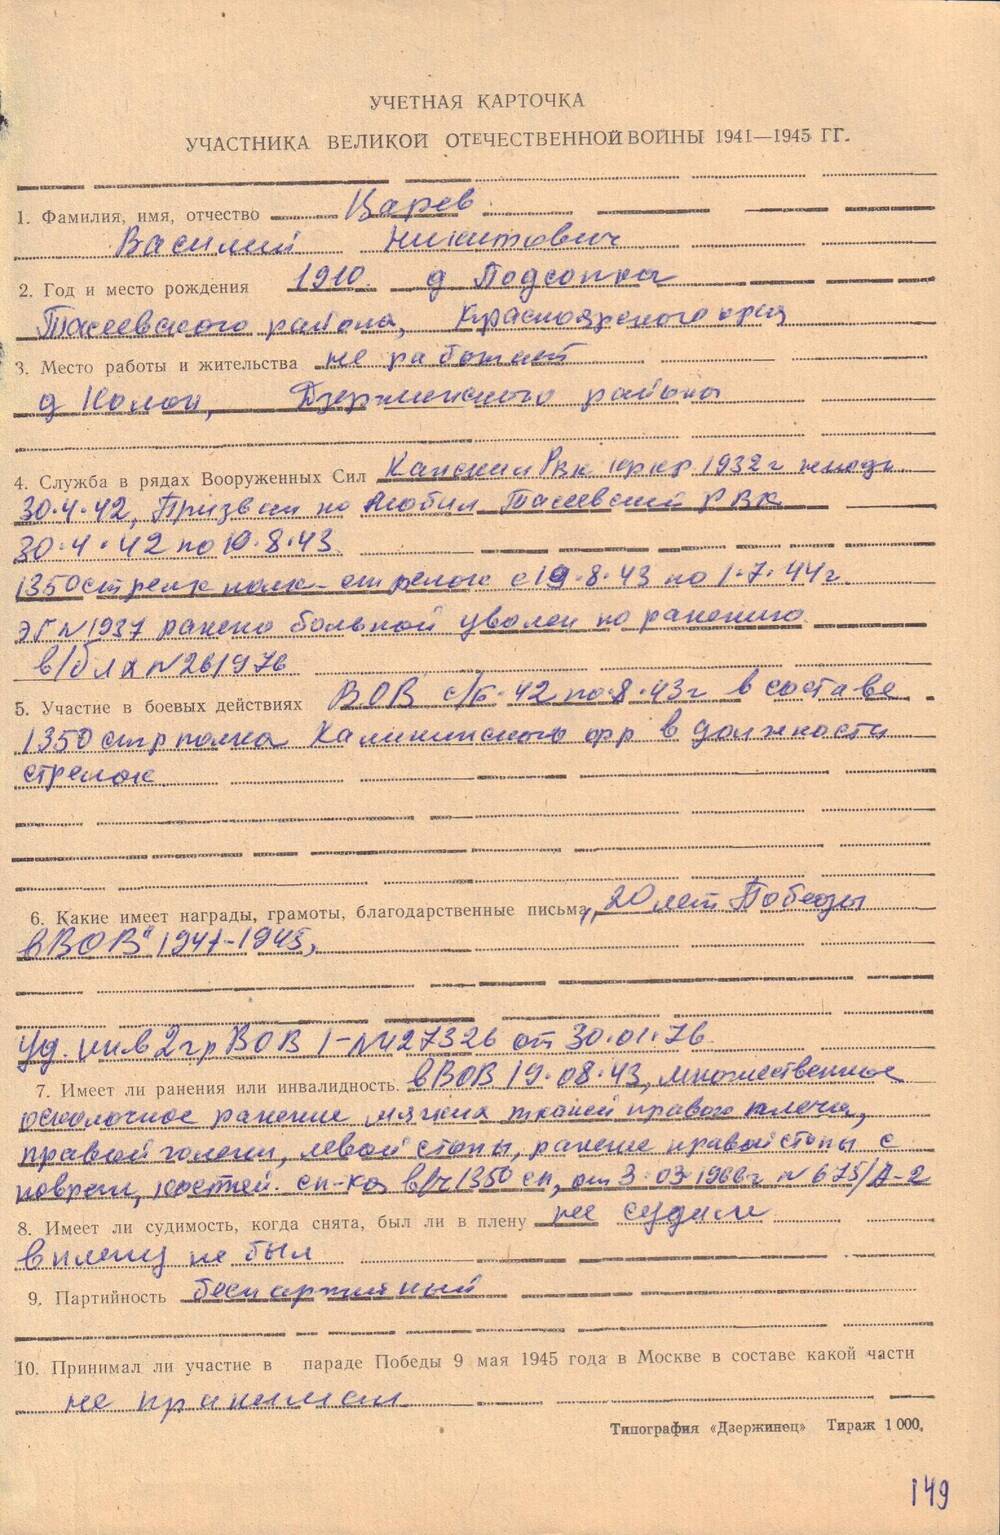 УЧЕТНАЯ КАРТОЧКА
УЧАСТНИКА ВЕЛИКОЙ ОТЕЧЕСТВЕННОЙ ВОЙНЫ 1941—1945 ГГ.
1. Фамилия, имя, отчество Царев
Василий Никитович
2. Год и место рождения 1910. д Подсопка
Тасеевского района, Красноярского края
3. Место работы и жительства не работает
д Колон, Дзержинского района
4. Служба в рядах Вооруженных Сил Канский Рвк 1932 г
30.4.42, Призван по мобил Тасеевский РВК
30.4.42 по 19.8.43
1350 стрелк полк- стрелок с 19.8.43 по 1.7.44 г.
ЭГ N 1937 ранено больной уволен по ранению
в/бл х N 261976
5. Участие в боевых действиях ВОВ 42 по 8.43 г в составе
1350 стр полка Калининского фр в должности
стрелок
6. Какие имеет награды, грамоты, благодарственные письма „20 лет Победы
в ВОВ" 1941-1945,
Уд. инв 2 гр ВОВ I- N 427326 от 30.01.76
7. Имеет ли ранения или инвалидность. в ВОВ 19.08.43, множественное
осколочное ранение мягких тканей правого плеча,
правой голени, левой стопы, ранение правой стопы с
поврежд, костей. сп-ка в/ч 1350 сп, от 3.03.1966 г N 675/А-2
8. Имеет ли судимость, когда снята, был ли в плену не судим
в плену не был
9. Партийность беспартийный
10. Принимал ли участие в параде Победы 9 мая 1945 года в Москве в составе какой части
не принимал
Типография «Дзержинец» Тираж 1 000.
149